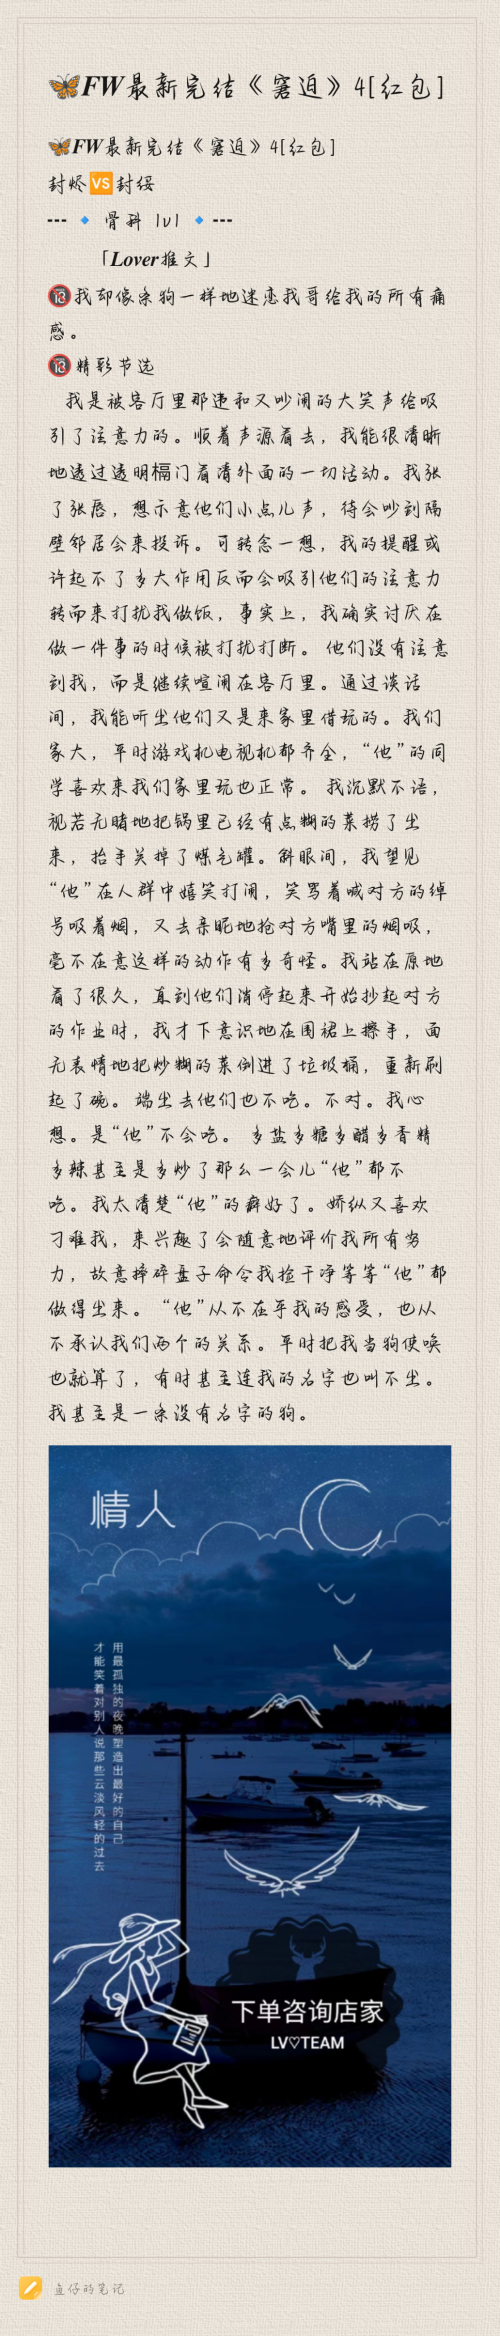 🦋FW最新完结《窘迫》4[红包]
🦋FW最新完结《窘迫》4[红包]
封烬🆚封绥
--- 🔹 骨科 1v1 🔹 ---
「Lover推文」
🔞我却像条狗一样地迷恋我哥给我的所有痛
感。
🔞精彩节选
我是被客厅里那违和又吵闹的大笑声给吸
引了注意力的。顺着声源看去，我能很清晰
地透过透明槅门看清外面的一切活动。我张
了张唇，想示意他们小点儿声，待会吵到隔
壁邻居会来投诉。可转念一想，我的提醒或
许起不了多大作用反而会吸引他们的注意力
转而来打扰我做饭，事实上，我确实讨厌在
做一件事的时候被打扰打断。 他们没有注意
到我，而是继续喧闹在客厅里。通过谈话
间，我能听出他们又是来家里借玩的。我们
家大，平时游戏机电视机都齐全，“他”的同
学喜欢来我们家里玩也正常。 我沉默不语，
视若无睹地把锅里已经有点糊的菜捞了出
来，抬手关掉了煤气罐。斜眼间，我望见
“他”在人群中嬉笑打闹，笑骂着喊对方的绰
号吸着烟，又去亲昵地抢对方嘴里的烟吸，
毫不在意这样的动作有多奇怪。我站在原地
看了很久，直到他们消停起来开始抄起对方
的作业时，我才下意识地在围裙上擦手，面
无表情地把炒糊的菜倒进了垃圾桶，重新刷
起了碗。 端出去他们也不吃。不对。我心
想。是“他”不会吃。 多盐多糖多醋多香精
多辣甚至是多炒了那么一会儿“他”都不
吃。我太清楚“他”的癖好了。娇纵又喜欢
刁难我，来兴趣了会随意地评价我所有努
力，故意摔碎盘子命令我捡干净等等“他”都
做得出来。 “他”从不在乎我的感受，也从
不承认我们两个的关系。平时把我当狗使唤
也就算了，有时甚至连我的名字也叫不出。
我甚至是一条没有名字的狗。
情人
用最孤独的夜晚塑造出最好的自己
才能笑着对别人说那些云淡风轻的过去
下单咨询店家
LV♡TEAM
鱼仔的笔记